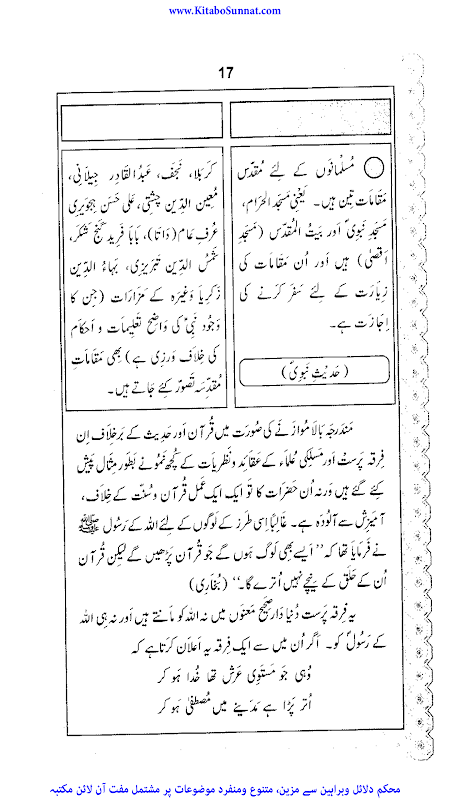 www.KitaboSunnat.com
17
مُسلمانوں کے لئے مُقدّس
مَقامات تین ہیں۔ یَعنی مَسجدُ الحَرام،
مَسجدِ نَبویؐ اَور بَیتُ المُقدّس (مَسجدِ
اَقصٰی) ہیں اَور اُن مَقامات کی
زِیارَت کے لئے سَفر کَرنے کی
اِجازَت ہے۔
( حَدیثِ نَبویؐ )
کَربَلا، نَجَف، عَبدُ القادِر جِیلانی،
مُعِینُ الدِّین چِشتی، عَلی حَسَن ہَجویری
عُرفِ عام (داتا)، بابا فَرید گَنج شَکر،
شَمسُ الدِّین تَبریزی، بَہاءُ الدِّین
زَکریا وَغیرہ کے مَزارات (جِن کا
وُجُود نَبیؐ کی وَاضِح تَعلیمات و اَحکام
کی خِلاف وَرزی ہے) بھی مَقاماتِ
مُقدّسہ تَصوّر کئے جاتے ہیں۔
مَندَرجہ بالا مُوازَنے کی صُورت میں قُرآن اَور حَدیث کے بَرخلاف اِن
فِرقہ پَرست اَور مَسلکی عُلماء کے عَقائد و نَظریات کے کُچھ نَمونے بَطَورِ مِثال پیش
کئے گئے ہیں وَرنہ اُن حَضرات کا تَو ایک ایک عَمل قُرآن و سُنّت کے خِلاف،
آمیزِش سے آلُودَہ ہے۔ غالباً اِسی طَرز کے لوگوں کے لئے اللہ کے رَسُول ﷺ
نے فَرمایا تھا کہ "اَیسے بھی لَوگ ہوں گے جَو قُرآن پَڑھیں گے لیکِن قُرآن
اُن کے حَلق کے نِیچے نَہیں اُترے گا۔" (بُخاری)
یہ فِرقہ پَرست دُنیا دار صَحیح مَعنوں میں نہ اللہ کو مانتے ہیں اَور نہ ہی اللہ
کے رَسُولؐ کو۔ اَگر اُن میں سے ایک فِرقہ یہ اِعلان کَرتا ہے کہ
وُہی جَو مُستَوِی عَرش تھا خُدا ہو کر
اُتر پَڑا ہے مَدینے میں مُصطفٰی ہو کر
محکم دلائل وبراہین سے مزین، متنوع ومنفرد موضوعات پر مشتمل مفت آن لائن مکتبہ